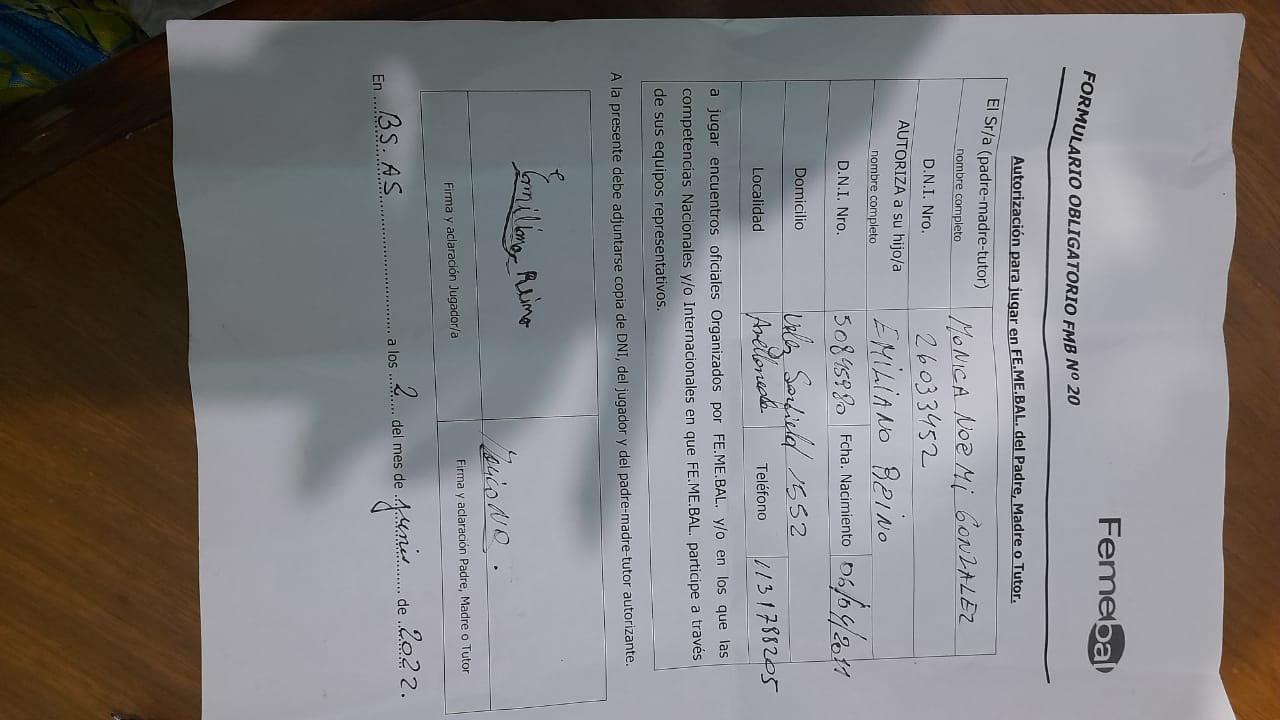 Femebal
FORMULARIO OBLIGATORIO FMB Nº 20
Autorización para jugar en FE.ME.BAL. del Padre, Madre o Tutor.
El Sr/a (padre-madre-tutor)
nombre completo MONICA NOEMI GONZALEZ
D.N.I. Nro. 26033452
AUTORIZA a su hijo/a
nombre completo EMILIANO REINO
D.N.I. Nro. 50845980 Fcha. Nacimiento 06/04/2011
Domicilio Velez Sarfield 1552
Localidad Avellaneda Teléfono 1131788205
a jugar encuentros oficiales Organizados por FE.ME.BAL. y/o en los que las
competencias Nacionales y/o Internacionales en que FE.ME.BAL. participe a través
de sus equipos representativos.
A la presente debe adjuntarse copia de DNI, del jugador y del padre-madre-tutor autorizante.
Emiliano Reino
Firma y aclaración Jugador/a Firma y aclaración Padre, Madre o Tutor
En BS.AS a los 2 del mes de junio de 2022.